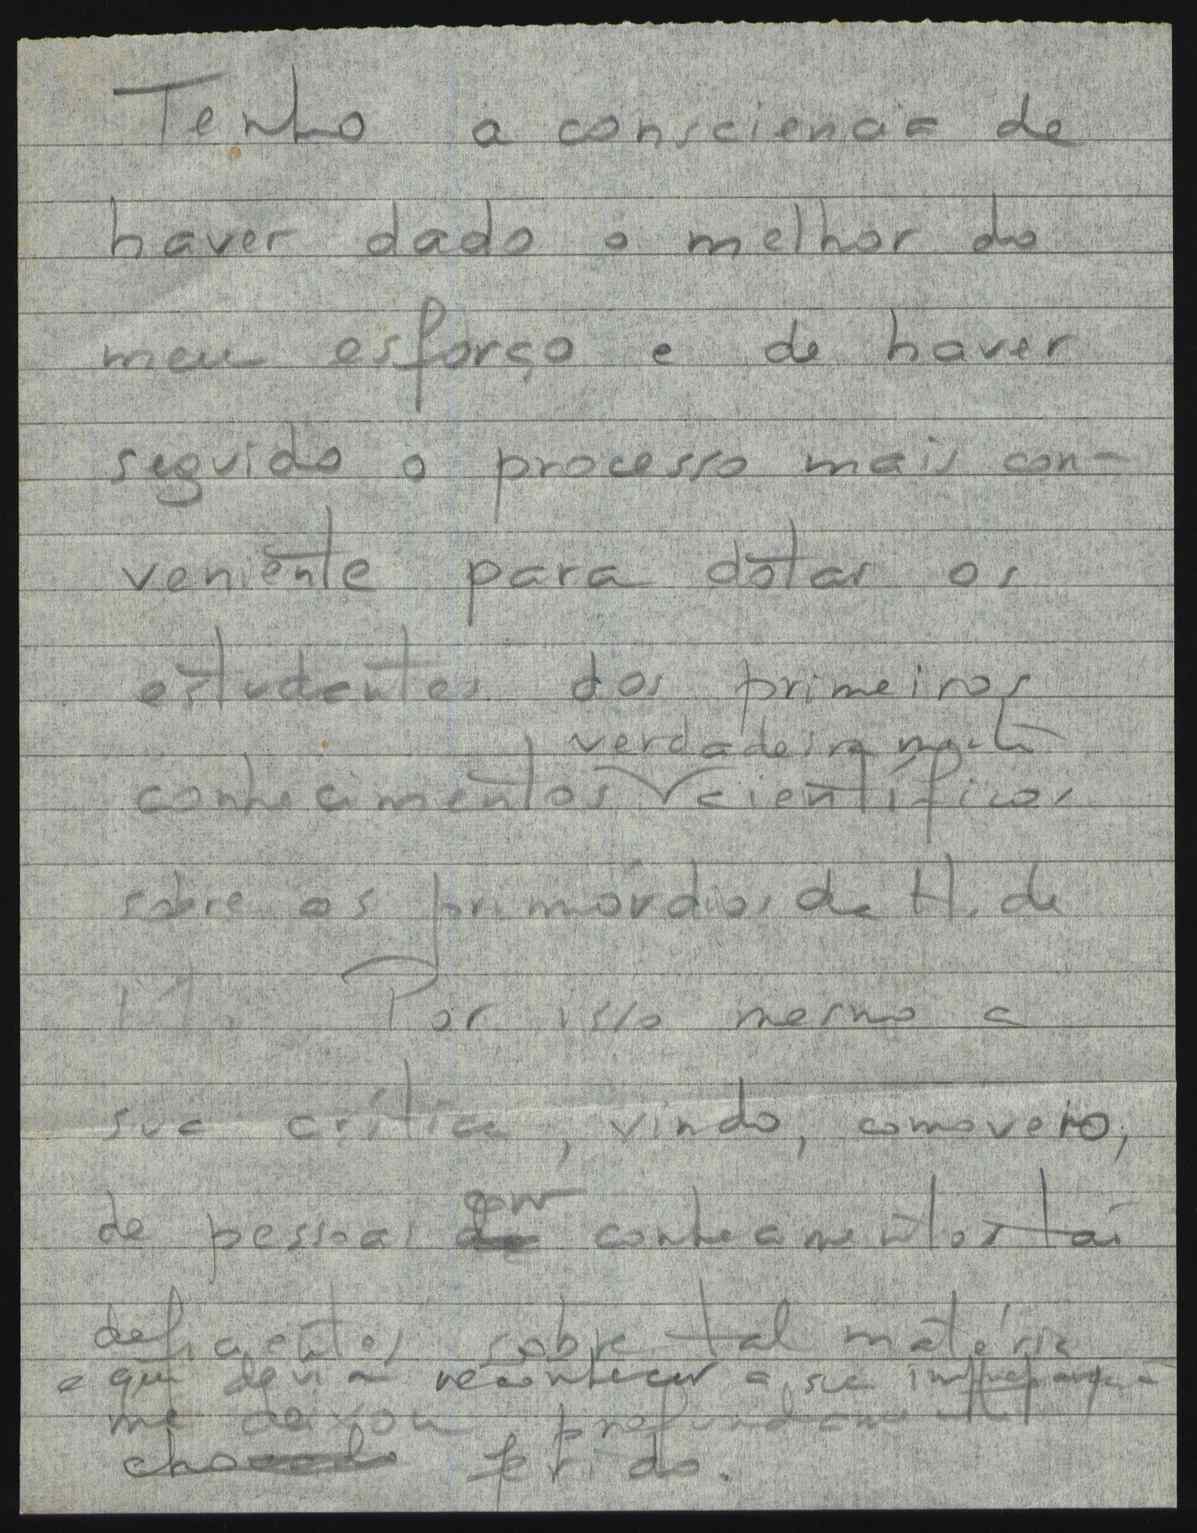 Tenho a consciencia de
haver dado o melhor do
meu esforço e de haver
seguido o processo mais con-
veniente para dotar os
estudantes dos primeiros
verdadeiramente
conhecimentos científicos
sobre os primórdios da H. de
M. Por isso mesmo a
sua crítica, vindo, como veio,
de pessoas com conhecimentos tão
deficientes sobre tal matéria
e que devia reconhecer a sua impreparação
me deixou profundamente
chocado ferido.